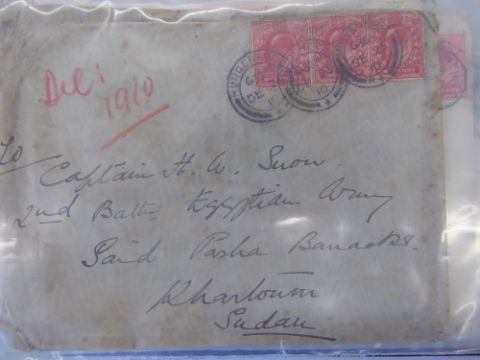 Dec:
1910
To
Captain H. W. Snow.
2nd Battn Egyptian Army
Said Pasha Barracks.
Khartoum
Sudan